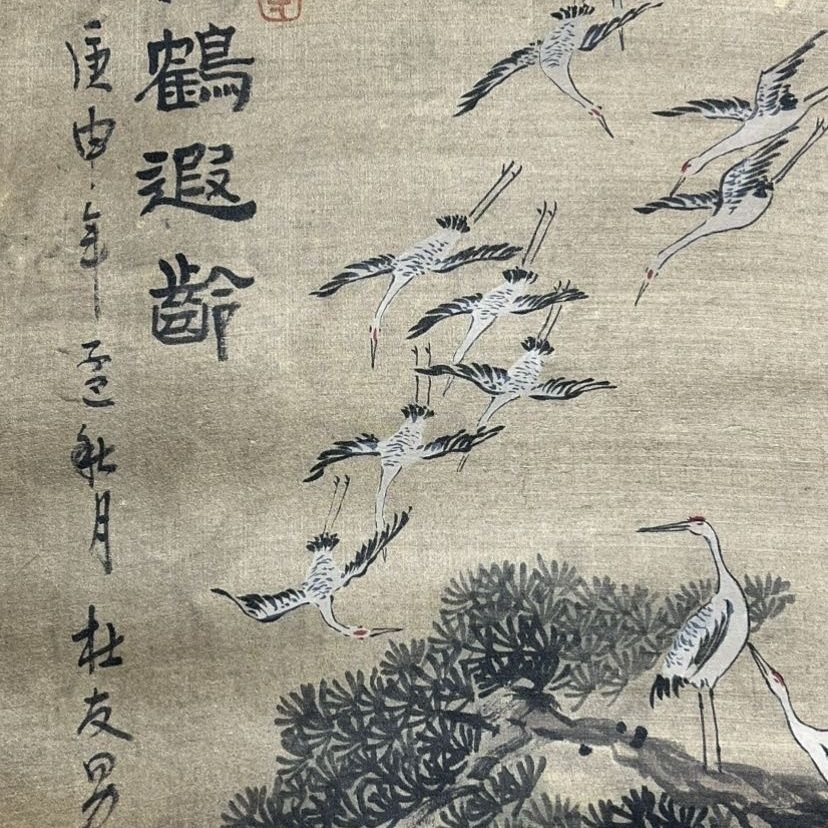 鶴遐齡
庚申年孟秋月 杜友